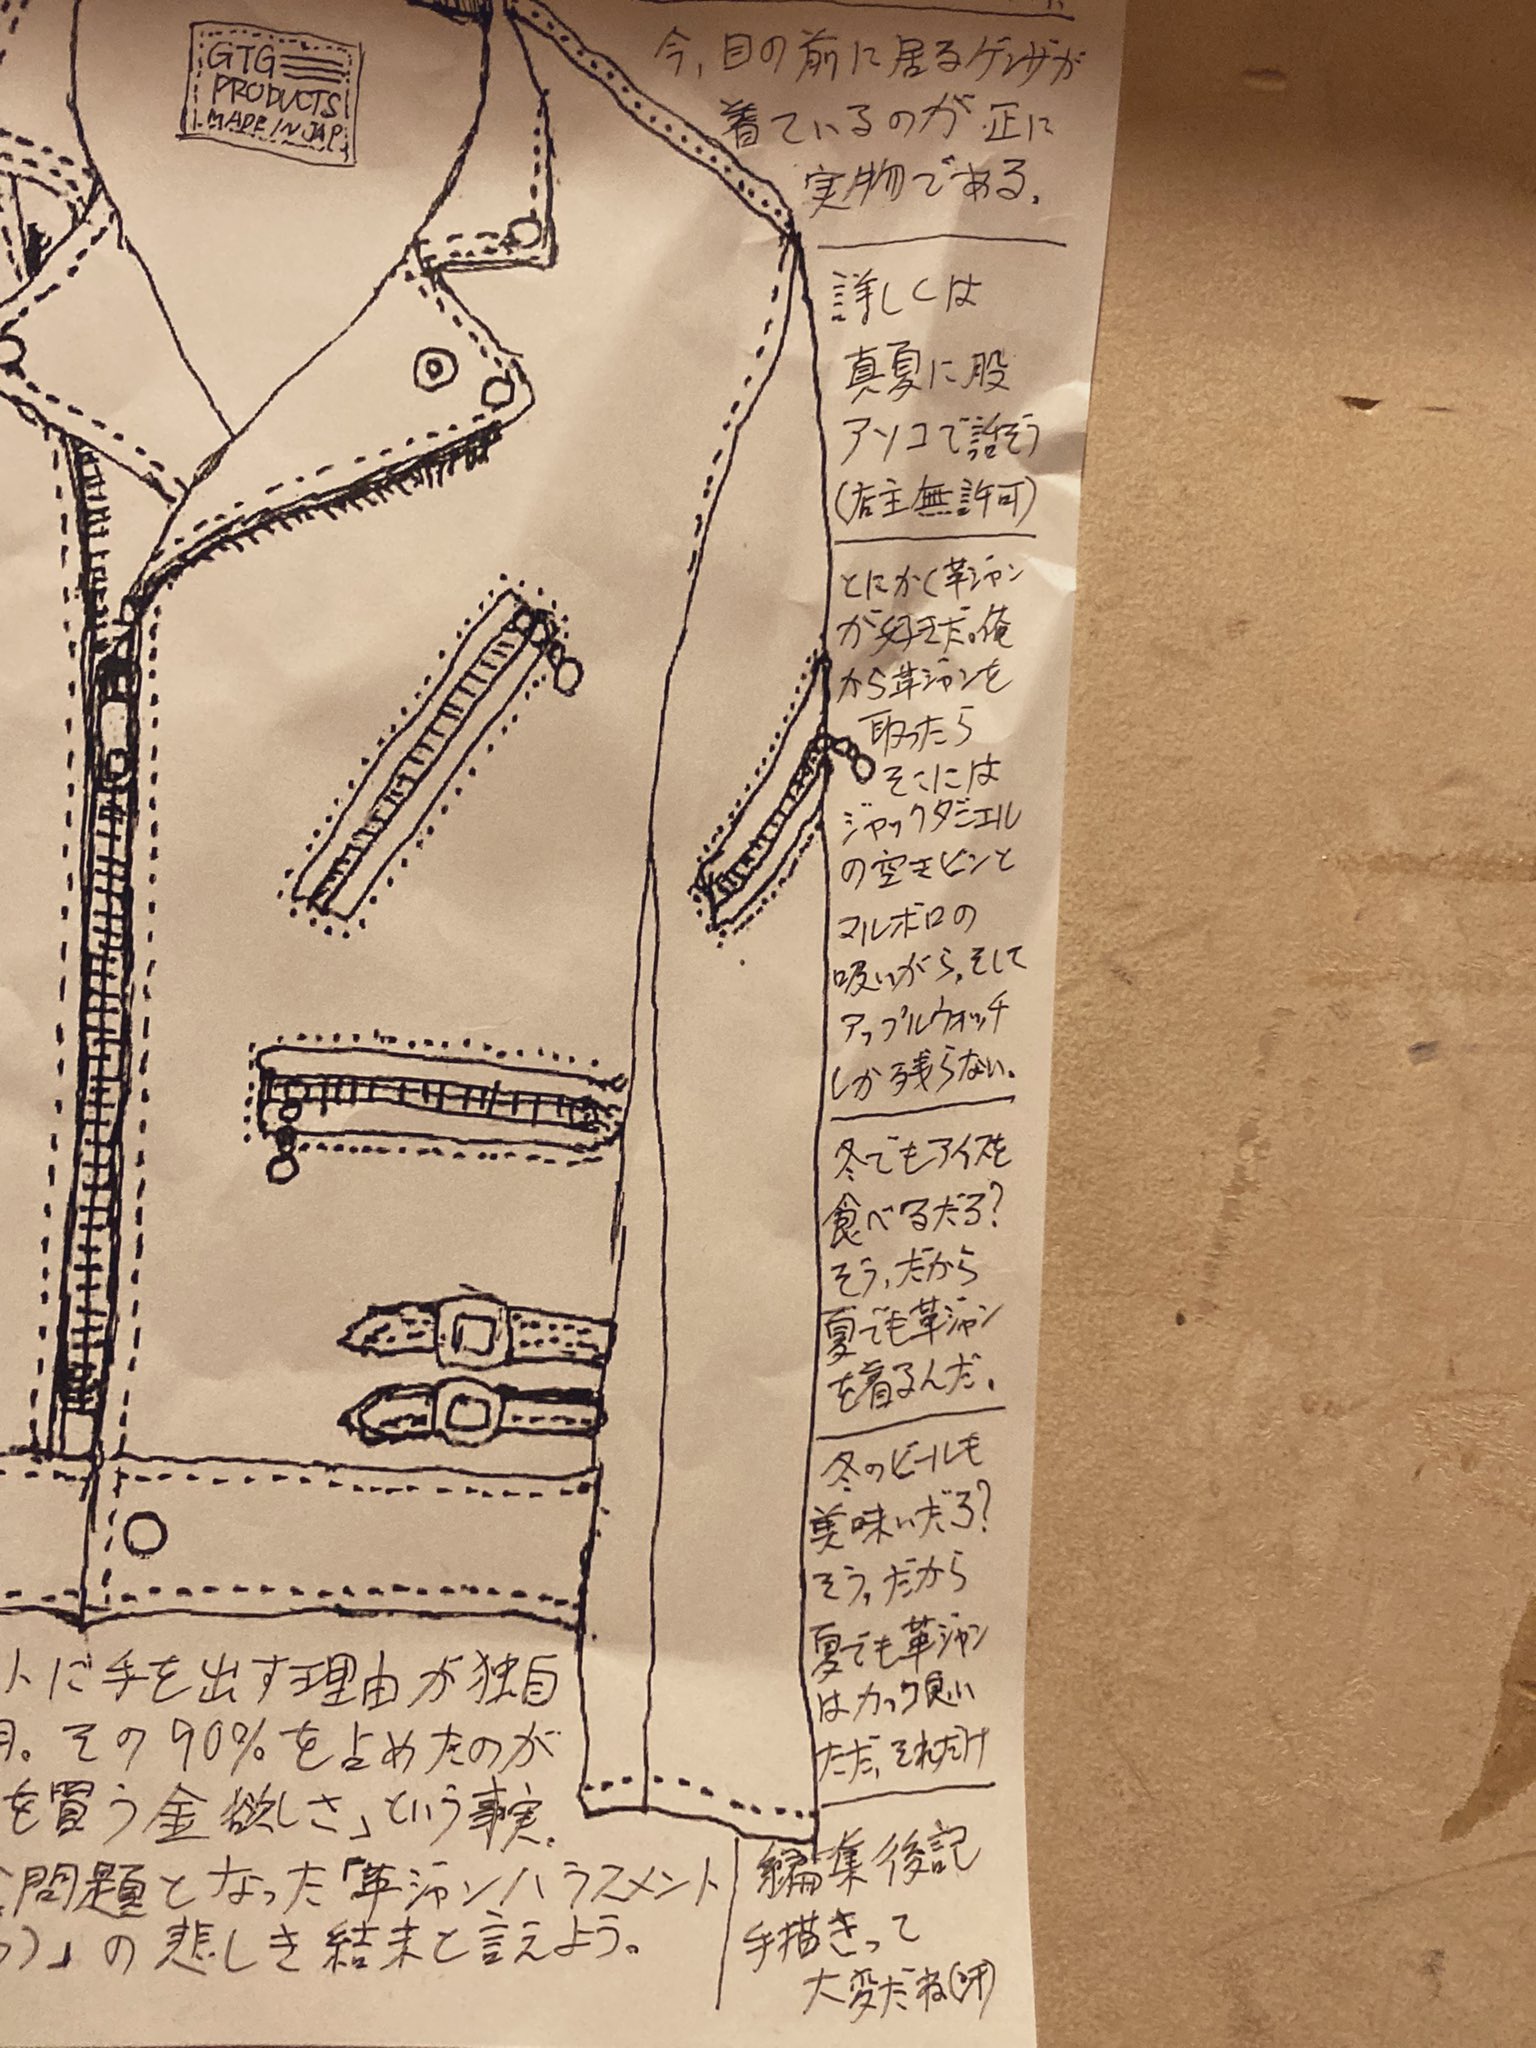 GTG
PRODUCTS
MADE IN JAP
今、目の前に居るゲンザが
着ているのが正に
実物である。
詳しくは
真夏に股
アソコで話そう
(店主無許可)
とにかく革ジャン
が好きだ。俺
から革ジャンを
取ったら
そこには
ジャックダニエル
の空きビンと
マルボロの
吸いがら、そして
アップルウォッチ
しか残らない。
冬でもアイスを
食べるだろ?
そう、だから
夏でも革ジャン
を着るんだ。
冬のビールも
美味いだろ?
そう、だから
夏でも革ジャン
はカック良い
ただ、それだけ
トに手を出す理由が独自
。その90%を占めたのが
を買う金欲しさ」という事実。
問題となった「革ジャンハラスメント
」の悲しき結末と言えよう。
編集後記
手描きって
大変だね